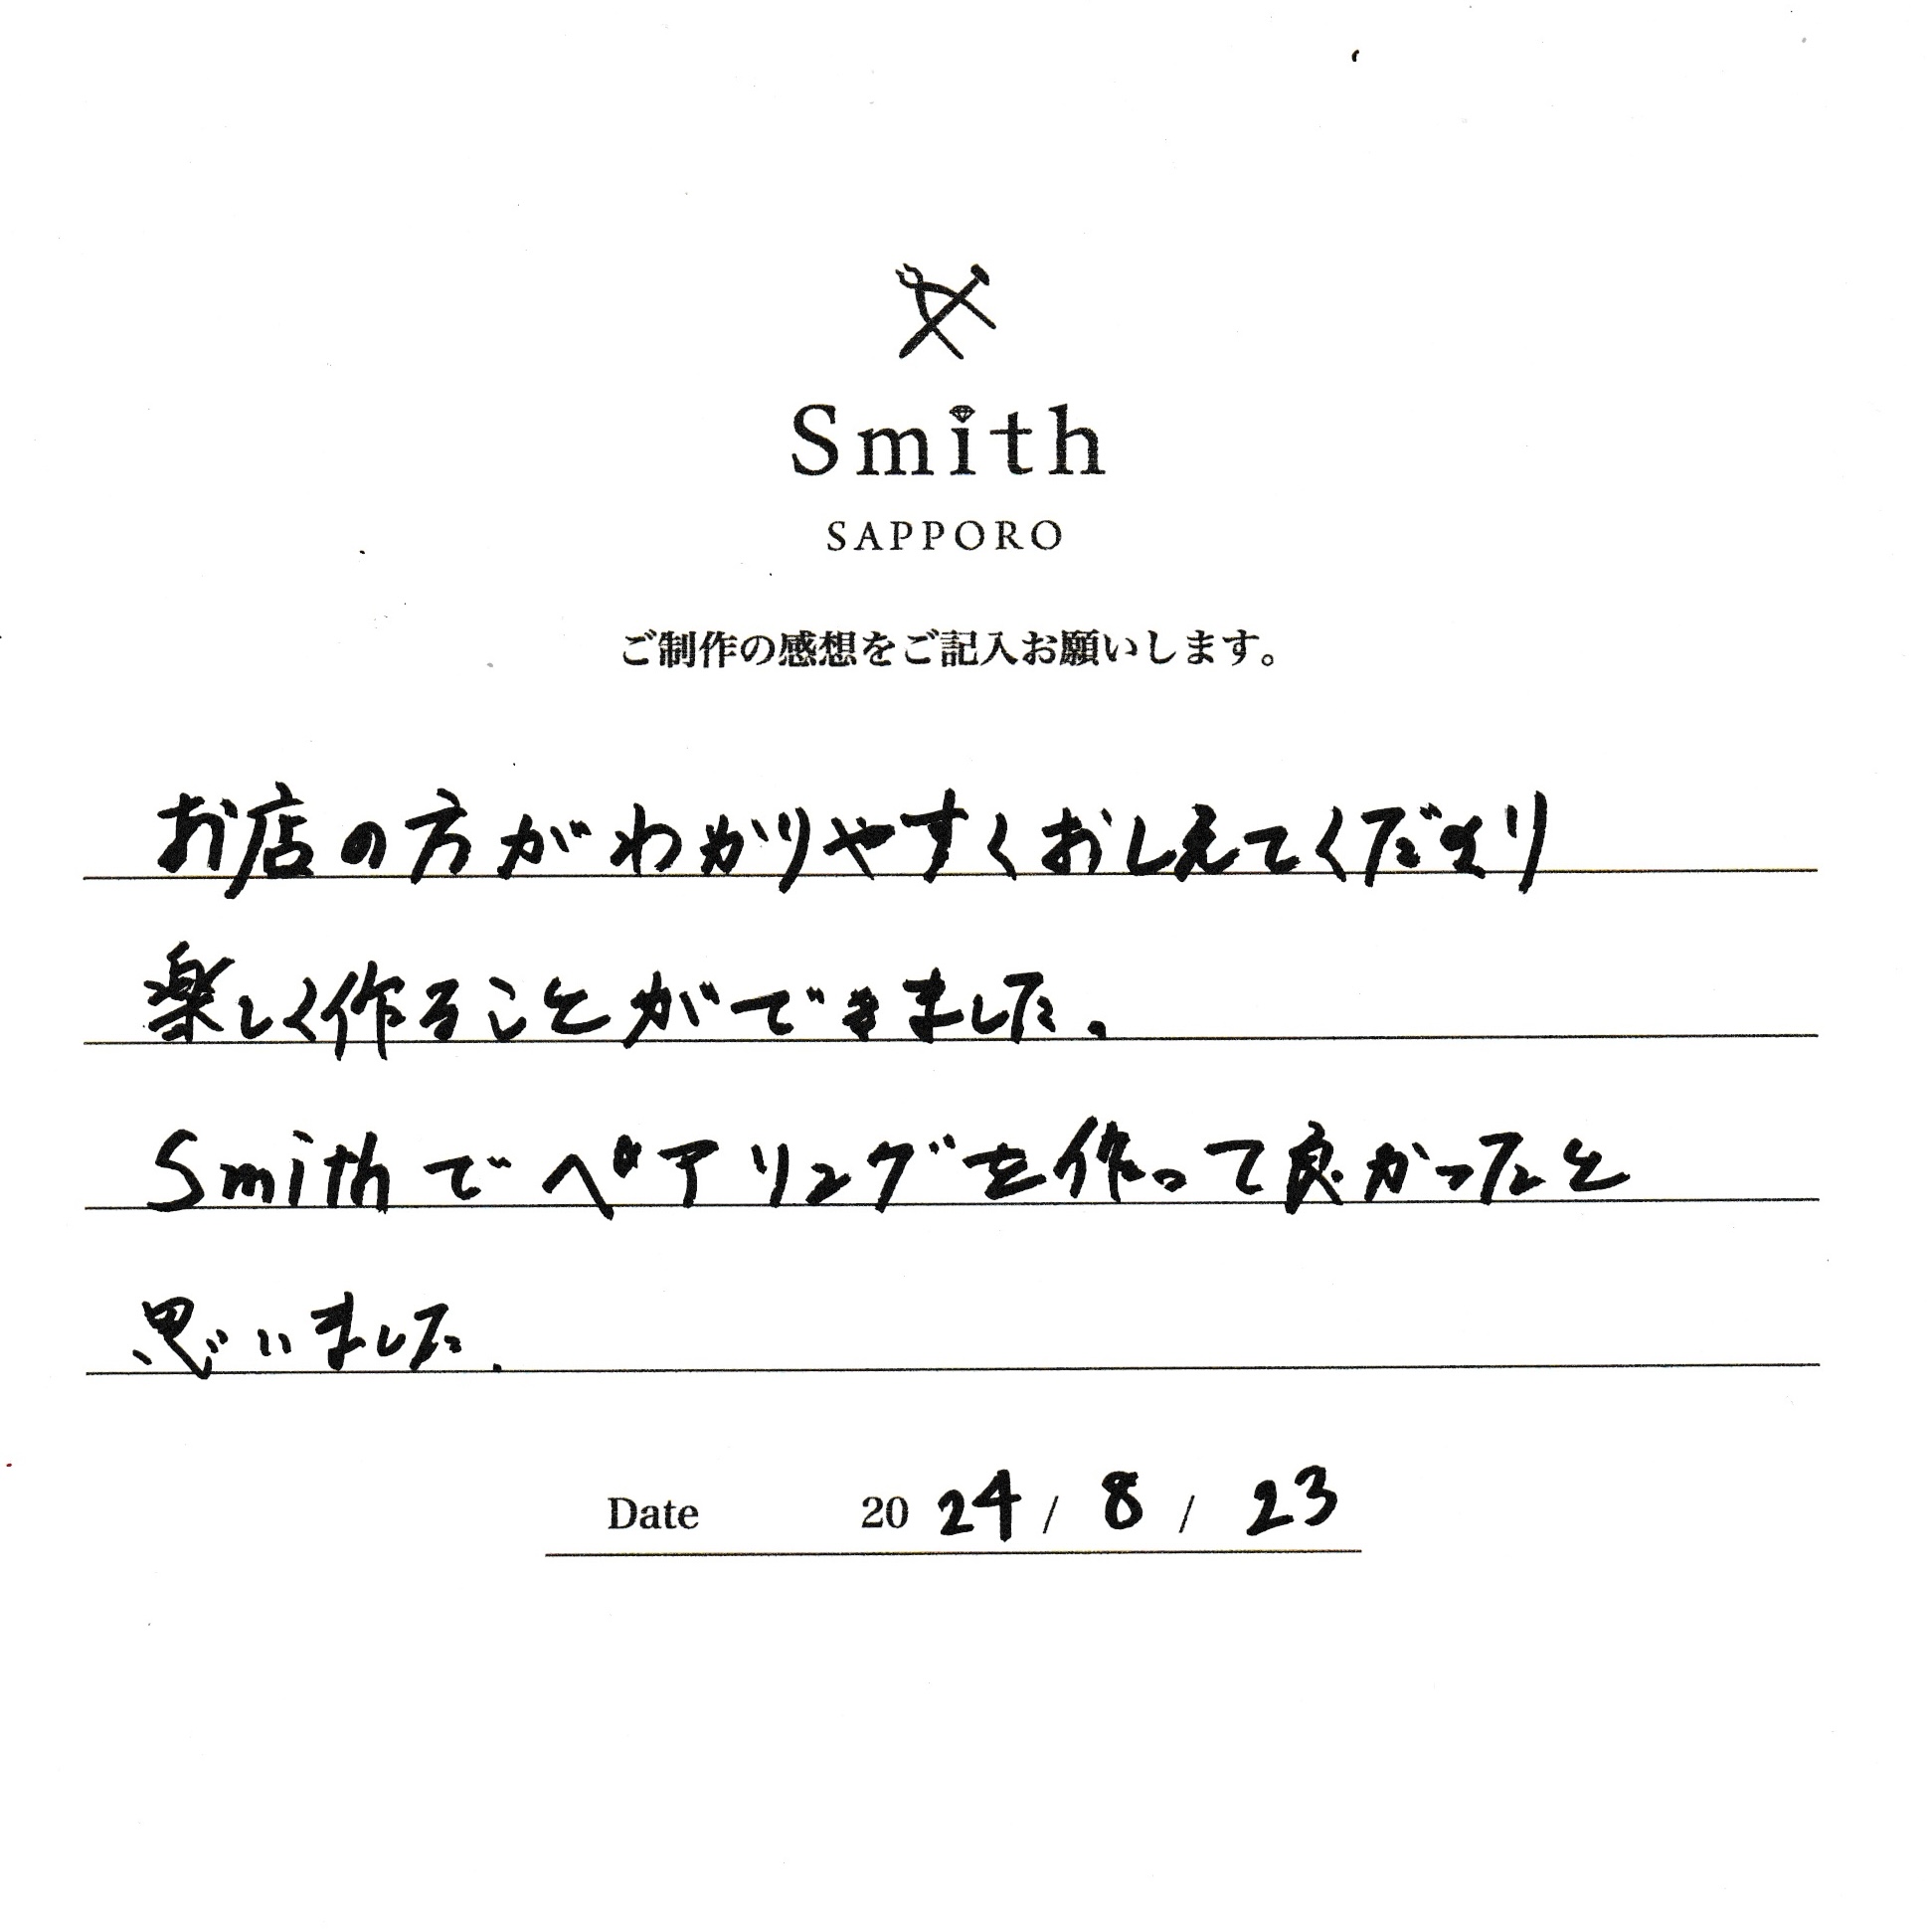 Smith
SAPPORO
ご制作の感想をご記入お願いします。
お店の方がわかりやすくおしえてくださり
楽しく作ることができました。
Smithでペアリングを作って良かったと
思いました。
Date 2024 / 8 / 23